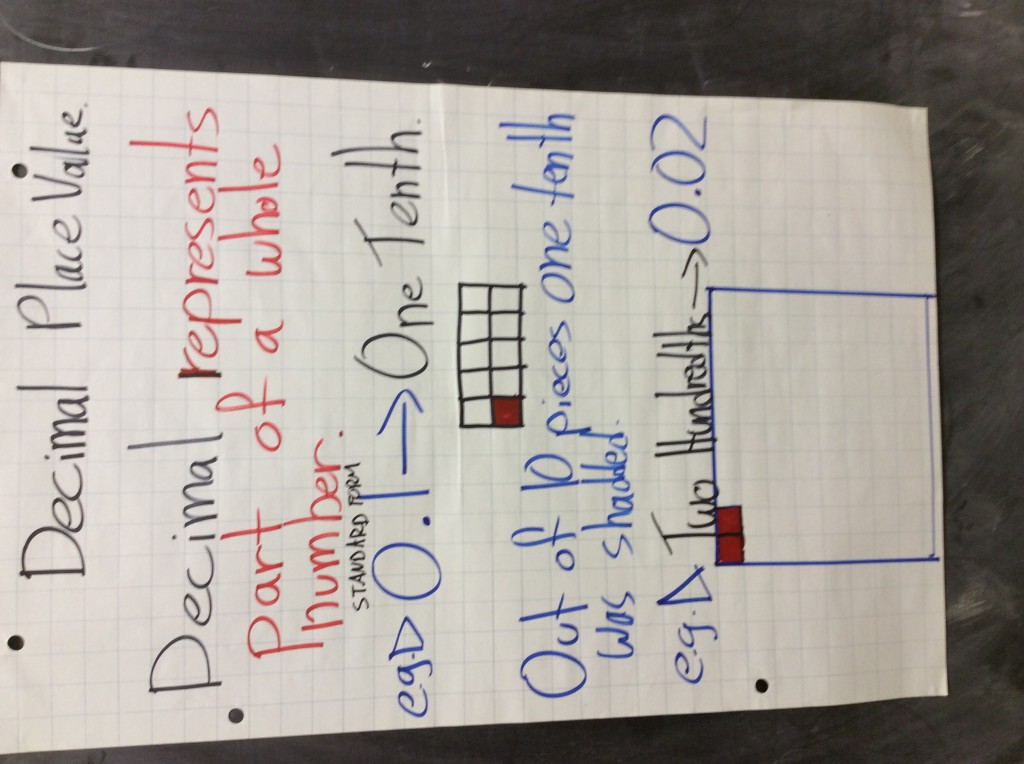 Decimal Place Value.
Decimal represents
Part of a whole
number.
STANDARD FORM
e.g.▷ 0.1 → One Tenth.
Out of 10 pieces one tenth
was shadded.
e.g.▷ Two Hundredths → 0.02